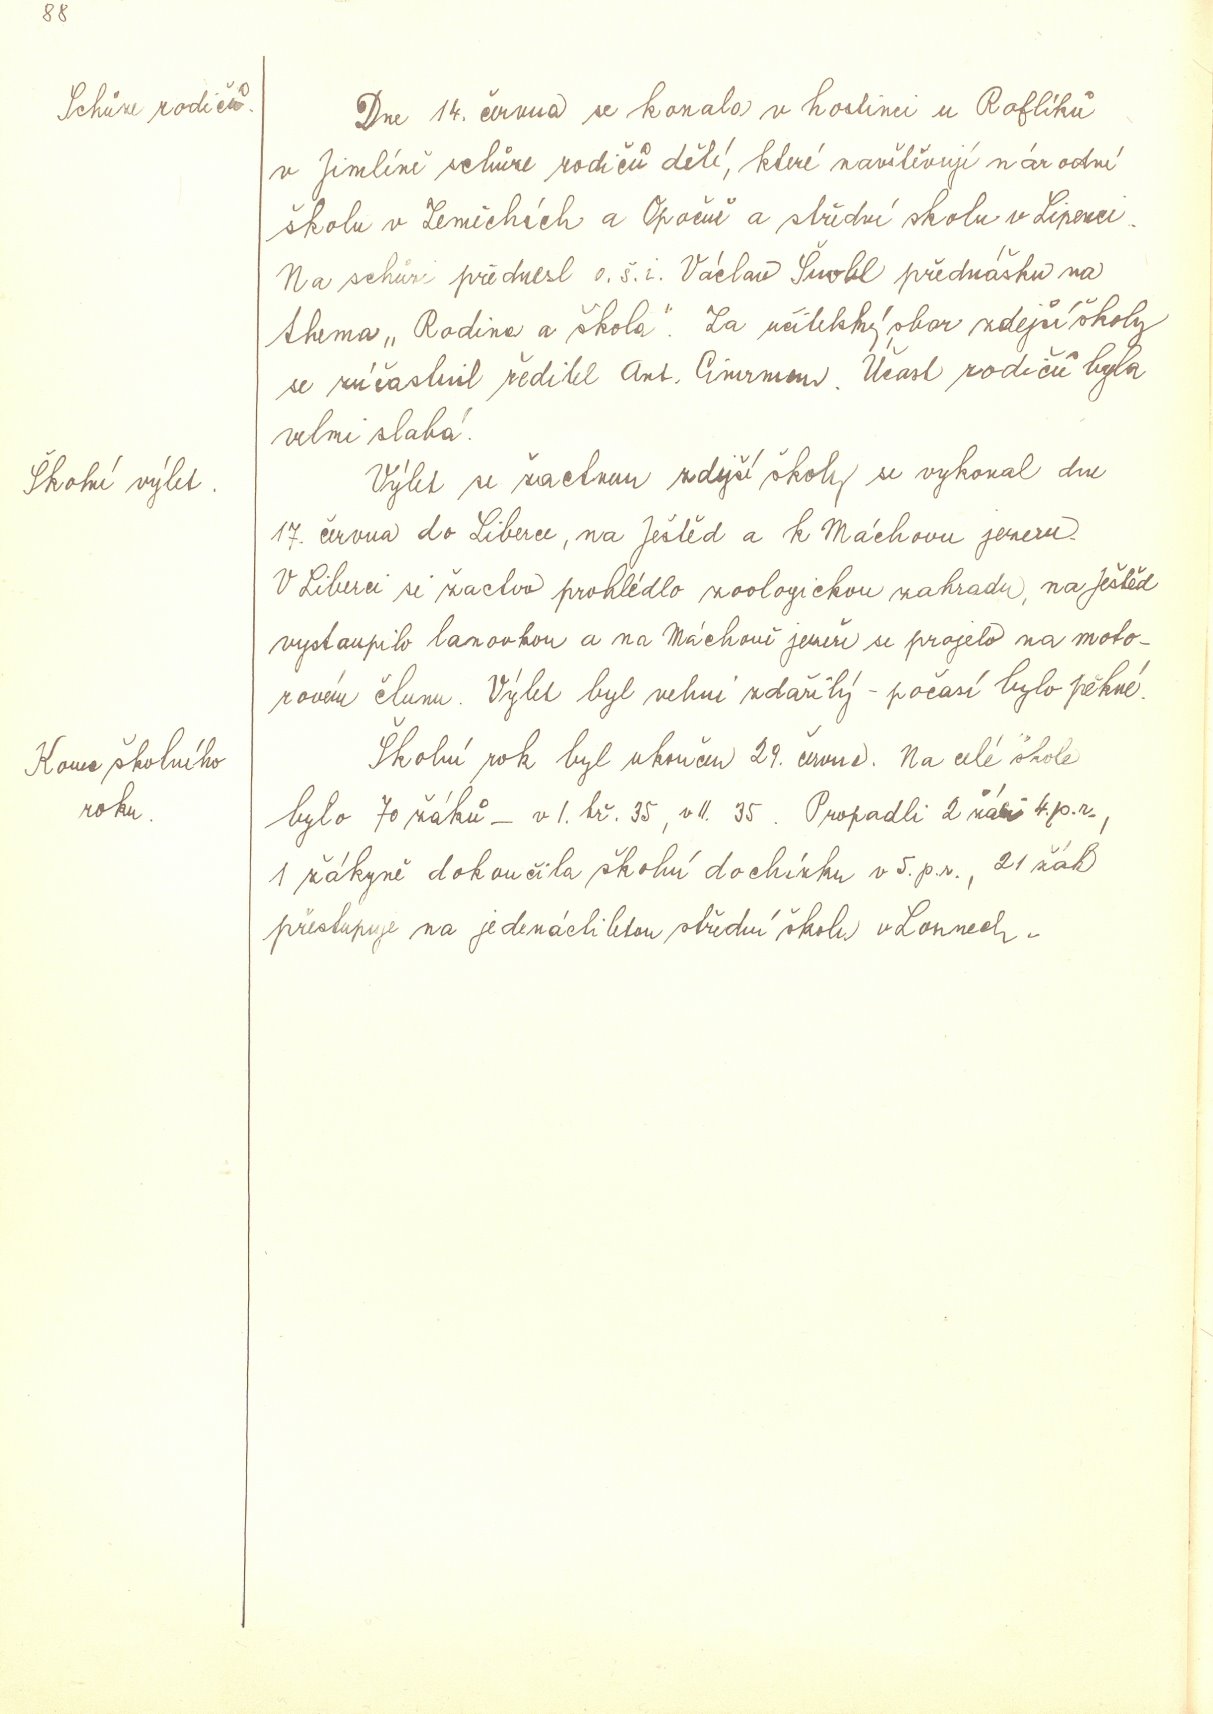 88
Schůze rodičů.
Dne 14. června se konala v hostinci u Roflíků
v Jimlíně schůze rodičů dětí, které navštěvují národní
školu v Zeměchách a Opočně a střední školu v Lipenci.
Na schůzi přednesl o. š. i. Václav přednášku na
thema „Rodina a škola". Za učitelský sbor zdejší školy
se zúčastnil ředitel Ant. Cimrman. Účast rodičů byla
velmi slabá.
Školní výlet.
Výlet se žactvem zdejší školy se vykonal dne
17. června do Liberce, na Ještěd a k Máchovu jezeru.
V Liberci si žactvo prohlédlo zoologickou zahradu, na Ještěd
vystoupilo lanovkou a na Máchově jezeře se projelo na moto-
rovém člunu. Výlet byl velmi zdařilý - počasí bylo pěkné.
Konec školního
roku.
Školní rok byl ukončen 29. června. Na celé škole
bylo 70 žáků – v I. tř. 35, v II. 35. Propadli 2 žáci 4. p. r.,
1 žákyně dokončila školní docházku v 5. p. r., 21 žák
přestupuje na jedenáctiletou střední školu v Lounech.